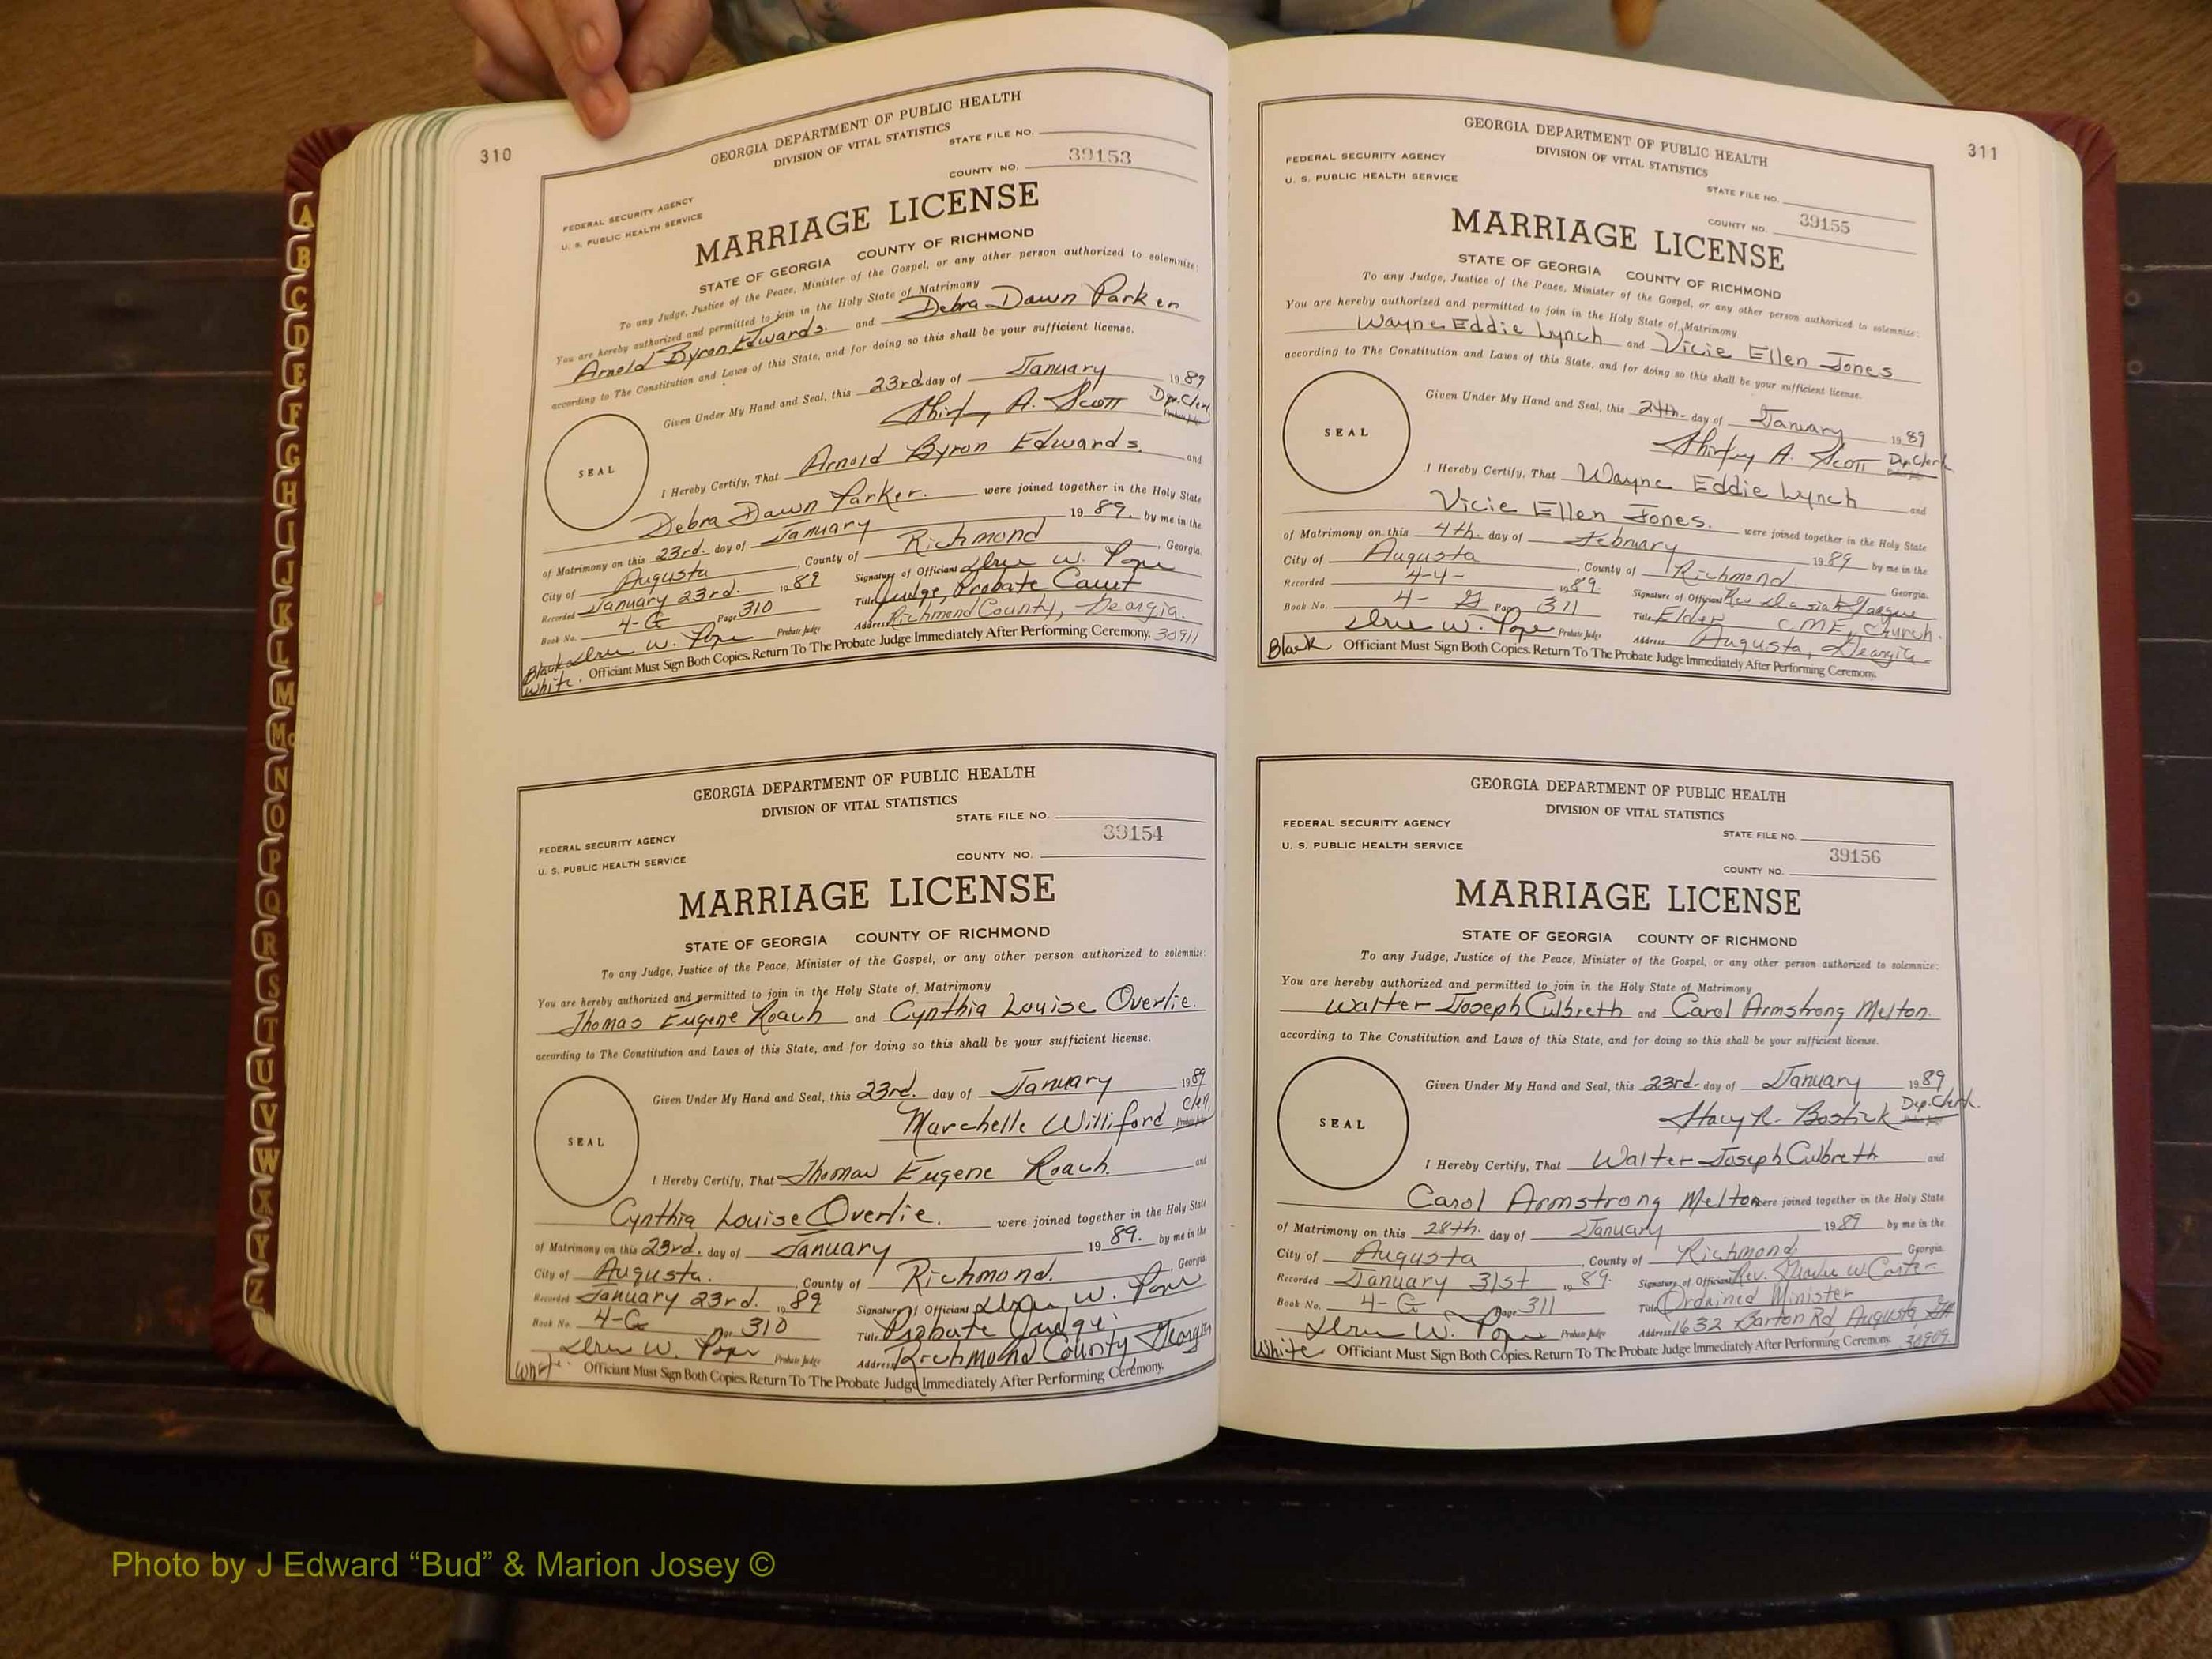 310
GEORGIA DEPARTMENT OF PUBLIC HEALTH
DIVISION OF VITAL STATISTICS
STATE FILE NO.
39153
COUNTY NO.
FEDERAL SECURITY AGENCY
U. S. PUBLIC HEALTH SERVICE
MARRIAGE LICENSE
STATE OF GEORGIA COUNTY OF RICHMOND
To any Judge, Justice of the Peace, Minister of the Gospel, or any other person authorized to solemnize:
You are hereby authorized and permitted to join in the Holy State of Matrimony
Arnold Byron Edwards. and Debra Dawn Parker
according to The Constitution and Laws of this State, and for doing so this shall be your sufficient license.
Given Under My Hand and Seal, this 23rd day of January 1989
Shirley A. Scott Dep. Clerk
SEAL
I Hereby Certify, That Arnold Byron Edwards. and
Debra Dawn Parker. were joined together in the Holy State
of Matrimony on this 23rd. day of January 1989. by me in the
City of Augusta, County of Richmond, Georgia.
Recorded January 23rd. 1989 Signature of Officiant W. Pope
Book No. 4-G Page 310 Title Judge, Probate Court
W. Pope Probate Judge Address Richmond County, Georgia. 30911
Black White. Officiant Must Sign Both Copies. Return To The Probate Judge Immediately After Performing Ceremony.
GEORGIA DEPARTMENT OF PUBLIC HEALTH
DIVISION OF VITAL STATISTICS
STATE FILE NO.
39154
FEDERAL SECURITY AGENCY
COUNTY NO.
U. S. PUBLIC HEALTH SERVICE
MARRIAGE LICENSE
STATE OF GEORGIA COUNTY OF RICHMOND
To any Judge, Justice of the Peace, Minister of the Gospel, or any other person authorized to solemnize:
You are hereby authorized and permitted to join in the Holy State of Matrimony
Thomas Eugene Roach and Cynthia Louise Overlie.
according to The Constitution and Laws of this State, and for doing so this shall be your sufficient license.
Given Under My Hand and Seal, this 23rd. day of January 1989
Marchelle Williford Clk.
SEAL
I Hereby Certify, That Thomas Eugene Roach. and
Cynthia Louise Overlie. were joined together in the Holy State
of Matrimony on this 23rd. day of January 1989. by me in the
City of Augusta. , County of Richmond. Georgia.
Recorded January 23rd. 1989 Signature of Officiant W. Pope
Book No. 4-G Page 310 Title Probate Judge
W. Pope Probate Judge Address Richmond County Georgia
White. Officiant Must Sign Both Copies. Return To The Probate Judge Immediately After Performing Ceremony.
311
GEORGIA DEPARTMENT OF PUBLIC HEALTH
FEDERAL SECURITY AGENCY
DIVISION OF VITAL STATISTICS
U. S. PUBLIC HEALTH SERVICE
STATE FILE NO.
COUNTY NO. 39155
MARRIAGE LICENSE
STATE OF GEORGIA COUNTY OF RICHMOND
To any Judge, Justice of the Peace, Minister of the Gospel, or any other person authorized to solemnize:
You are hereby authorized and permitted to join in the Holy State of Matrimony
Wayne Eddie Lynch and Vicie Ellen Jones
according to The Constitution and Laws of this State, and for doing so this shall be your sufficient license.
Given Under My Hand and Seal, this 24th. day of January 1989
Shirley A. Scott Dep. Clerk
SEAL
I Hereby Certify, That Wayne Eddie Lynch and
Vicie Ellen Jones. were joined together in the Holy State
of Matrimony on this 4th. day of February 1989 by me in the
City of Augusta, County of Richmond. Georgia.
Recorded 4-4- 1989. Signature of Officiant Rev
Book No. 4-G Page 311 Title Elder C.M.E. Church.
W. Pope Probate Judge Address Augusta, Georgia.
Black Officiant Must Sign Both Copies. Return To The Probate Judge Immediately After Performing Ceremony.
GEORGIA DEPARTMENT OF PUBLIC HEALTH
DIVISION OF VITAL STATISTICS
FEDERAL SECURITY AGENCY
STATE FILE NO.
U. S. PUBLIC HEALTH SERVICE
39156
COUNTY NO.
MARRIAGE LICENSE
STATE OF GEORGIA COUNTY OF RICHMOND
To any Judge, Justice of the Peace, Minister of the Gospel, or any other person authorized to solemnize:
You are hereby authorized and permitted to join in the Holy State of Matrimony
Walter Joseph Culbreth and Carol Armstrong Melton.
according to The Constitution and Laws of this State, and for doing so this shall be your sufficient license.
Given Under My Hand and Seal, this 23rd. day of January 1989
Stacy R. Bostick Dep. Clerk.
SEAL
I Hereby Certify, That Walter Joseph Culbreth and
Carol Armstrong Melton were joined together in the Holy State
of Matrimony on this 28th. day of January 1989 by me in the
City of Augusta, County of Richmond, Georgia.
Recorded January 31st 1989. Signature of Officiant Rev. W. Carter
Book No. 4-G Page 311 Title Ordained Minister
W. Pope Probate Judge Address 1632 Barton Rd Augusta, GA
White Officiant Must Sign Both Copies. Return To The Probate Judge Immediately After Performing Ceremony. 30909.
A
B
C
D
E
F
G
H
I
J
K
L
M
Mc
N
O
P
Q
R
S
T
U
V
W
X
Y
Z
Photo by J Edward “Bud” & Marion Josey ©